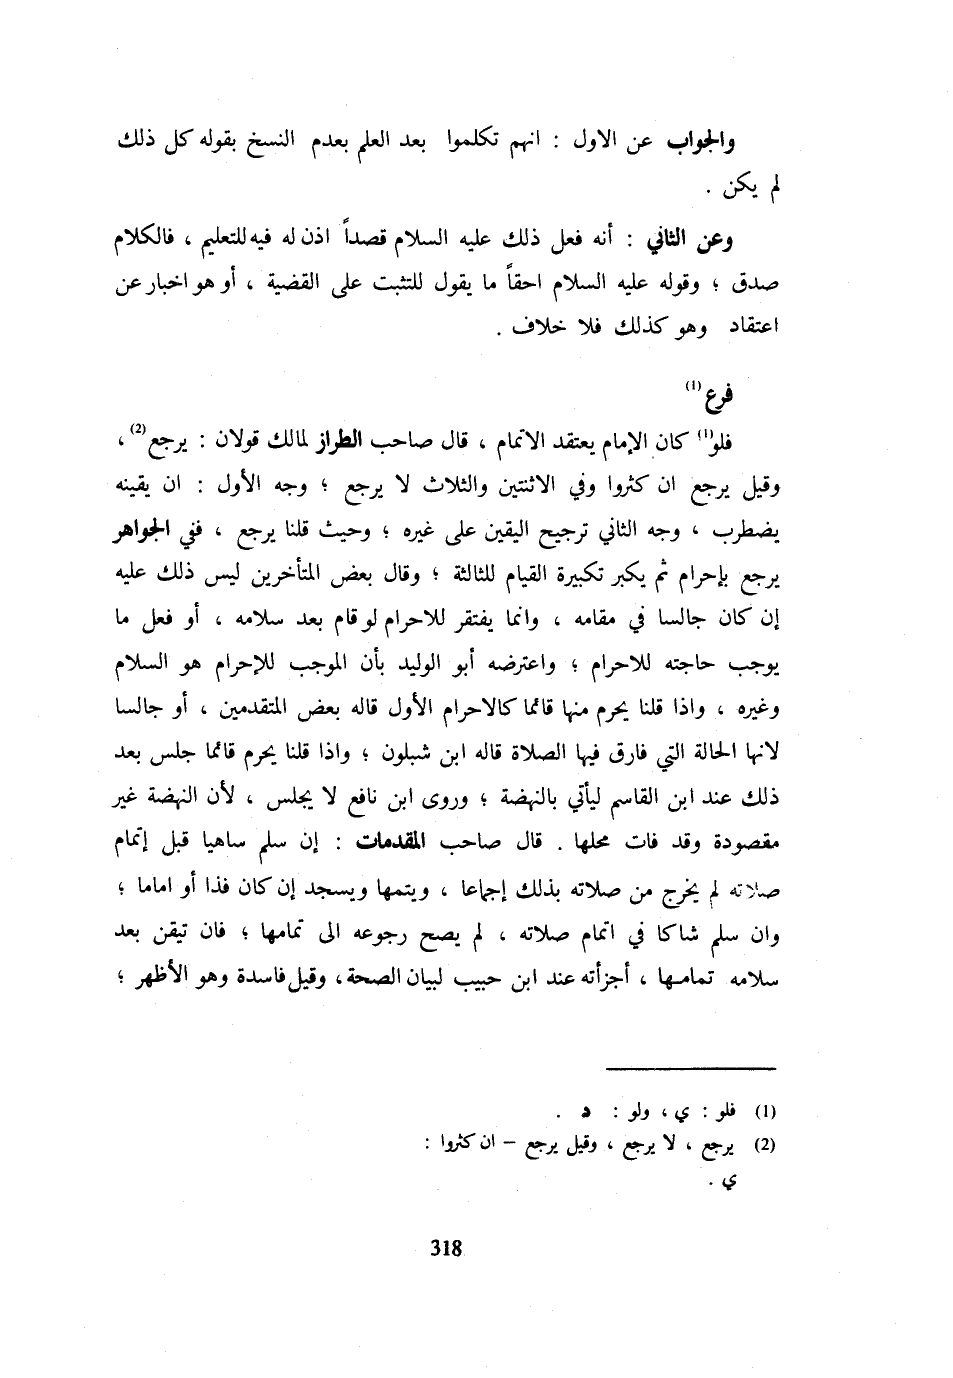 والجواب عن الاول : انهم تكلموا بعد العلم بعدم النسخ بقوله كل ذلك
لم يكن .
وعن الثاني : أنه فعل ذلك عليه السلام قصداً اذن له فيه للتعليم ، فالكلام
صدق ؛ وقوله عليه السلام احقاً ما يقول للتثبت على القضية ، أو هو اخبار عن
اعتقاد وهو كذلك فلا خلاف .
فرع (1)
فلو(1) كان الإمام يعتقد الاتمام ، قال صاحب الطراز لمالك قولان : يرجع(2) ،
وقيل يرجع ان كثروا وفي الاثنتين والثلاث لا يرجع ؛ وجه الأول : ان يقينه
يضطرب ، وجه الثاني ترجيح اليقين على غيره ؛ وحيث قلنا يرجع ، ففي الجواهر
يرجع بإحرام ثم يكبر تكبيرة القيام للثالثة ؛ وقال بعض المتأخرين ليس ذلك عليه
إن كان جالسا في مقامه ، وانما يفتقر للاحرام لو قام بعد سلامه ، أو فعل ما
يوجب حاجته للاحرام ؛ واعترضه أبو الوليد بأن الموجب للإحرام هو السلام
وغيره ، واذا قلنا يحرم منها قائما كالاحرام الأول قاله بعض المتقدمين ، أو جالسا
لانها الحالة التي فارق فيها الصلاة قاله ابن شبلون ؛ واذا قلنا يحرم قائما جلس بعد
ذلك عند ابن القاسم ليأتي بالنهضة ؛ وروى ابن نافع لا يجلس ، لأن النهضة غير
مقصودة وقد فات محلها . قال صاحب المقدمات : إن سلم ساهيا قبل إتمام
صلاته لم يخرج من صلاته بذلك إجماعا ، ويتمها ويسجد إن كان فذا أو اماما ؛
وان سلم شاكا في اتمام صلاته ، لم يصح رجوعه الى تمامها ؛ فان تيقن بعد
سلامه تمامها ، أجزأته عند ابن حبيب لبيان الصحة ، وقيل فاسدة وهو الأظهر ؛
(1) فلو : ي ، ولو : د .
(2) يرجع ، لا يرجع ، وقيل يرجع – ان كثروا :
ي .
318